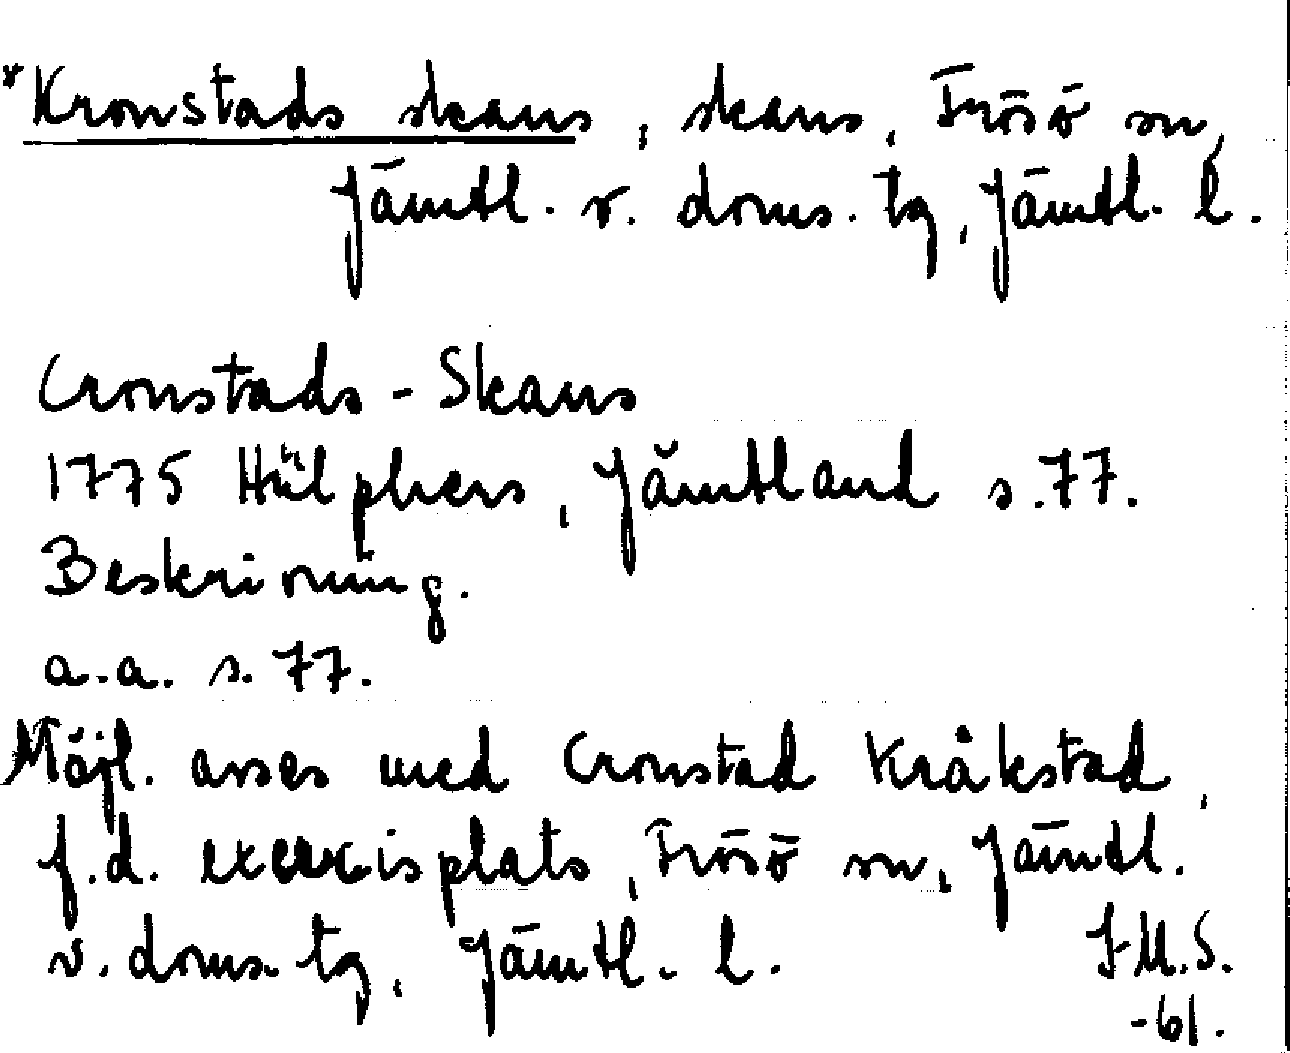 *Kronstads skans, skans, Frösö sn,
Jämtl. v. doms. tg, Jämtl. l.
Cronstads-Skans
1775 Hülphers, Jämtland s. 77.
Beskrivning.
a.a. s. 77.
Möjl. avses med Cronstad Kråkstad,
f.d. exercisplats, Frösö sn, Jämtl.
v. doms. tg, Jämtl. l. I M.S.
-61.